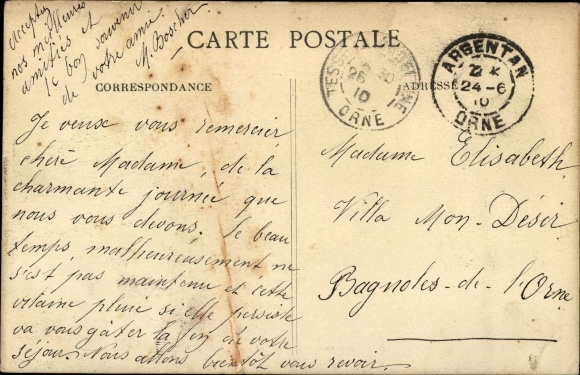 acceptez
nos meilleures
amitiés et
le bon souvenir
de votre amie
M. Boscher
CARTE POSTALE
CORRESPONDANCE
ADRESSE
TESSÉ
26
10
ORNE
ARGENTAN
24-6
10
ORNE
Je veux vous remercier
chère Madame, de la
charmante journée que
nous vous devons. Le beau
temps malheureusement ne
s'est pas maintenu et cette
vilaine pluie si elle persiste
va vous gâter la fin de votre
séjour. Nous allons bientôt vous revoir.
Madame Elisabeth
Villa Mon-Désir
Bagnoles-de-l'Orne